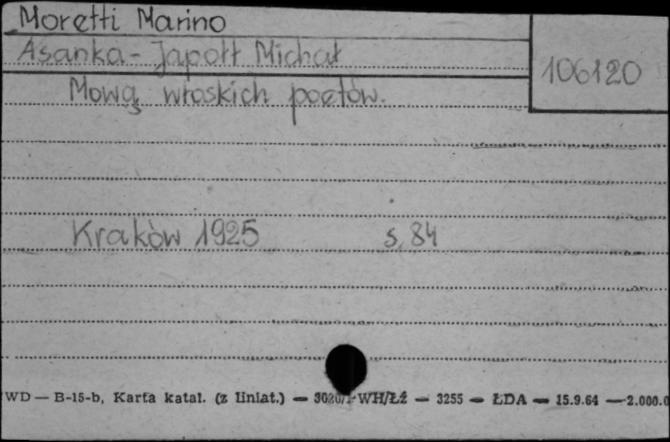 Moretti Marino
Asanka-Japołł Michał
106120
Mową włoskich poetów.
Kraków 1925 s. 84
WD — B-15-b, Karta katal. (z liniat.) — WH/Łź — 3255 — ŁDA — 15.9.64 — 2.000.0